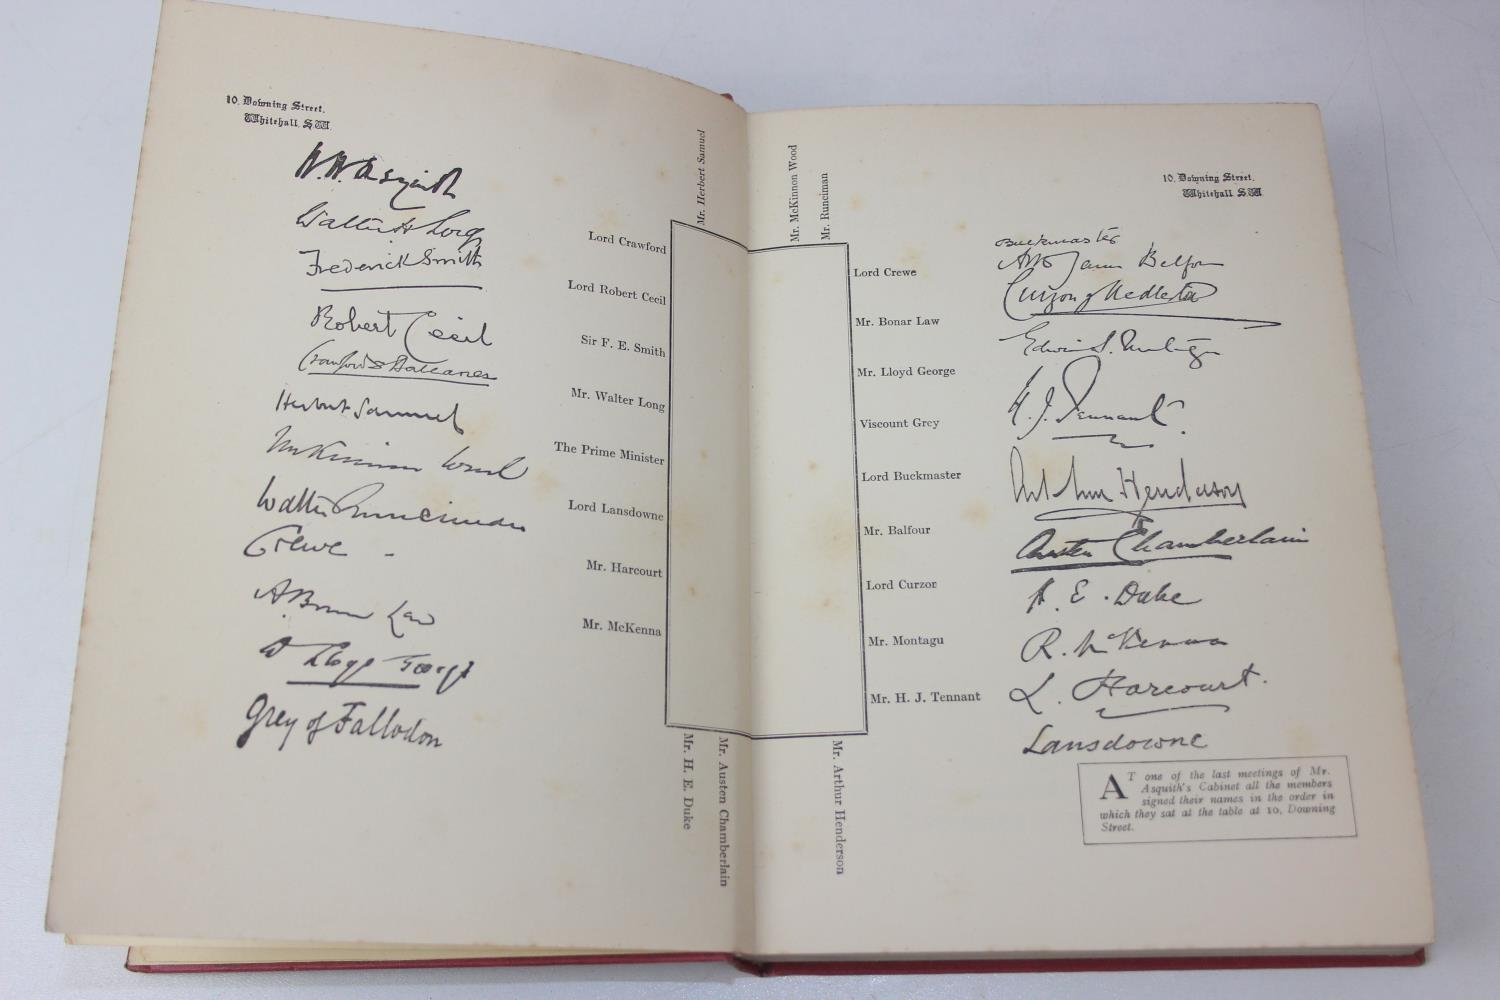 10, Downing Street,
Whitehall. S.W.
H. H. Asquith
Walter H Long
Frederick Smith
Robert Cecil
Crawford & Balcarres
Herbert Samuel
McKinnon Wood
Walter Runciman
Crewe
A. Bonar Law
D Lloyd George
Grey of Fallodon
Mr. Herbert Samuel
Lord Crawford
Lord Robert Cecil
Sir F. E. Smith
Mr. Walter Long
The Prime Minister
Lord Lansdowne
Mr. Harcourt
Mr. McKenna
Mr. H. E. Duke
Mr. Austen Chamberlain
Mr. McKinnon Wood
Mr. Runciman
Lord Crewe
Mr. Bonar Law
Mr. Lloyd George
Viscount Grey
Lord Buckmaster
Mr. Balfour
Lord Curzon
Mr. Montagu
Mr. H. J. Tennant
Mr. Arthur Henderson
10, Downing Street,
Whitehall S.W.
Buckmaster
Arthur James Balfour
Curzon of Kedleston
Edwin S. Montagu
H. J. Tennant.
Arthur Henderson
Austen Chamberlain
H. E. Duke
R. McKenna
L. Harcourt.
Lansdowne
AT one of the last meetings of Mr.
Asquith's Cabinet all the members
signed their names in the order in
which they sat at the table at 10, Downing
Street.